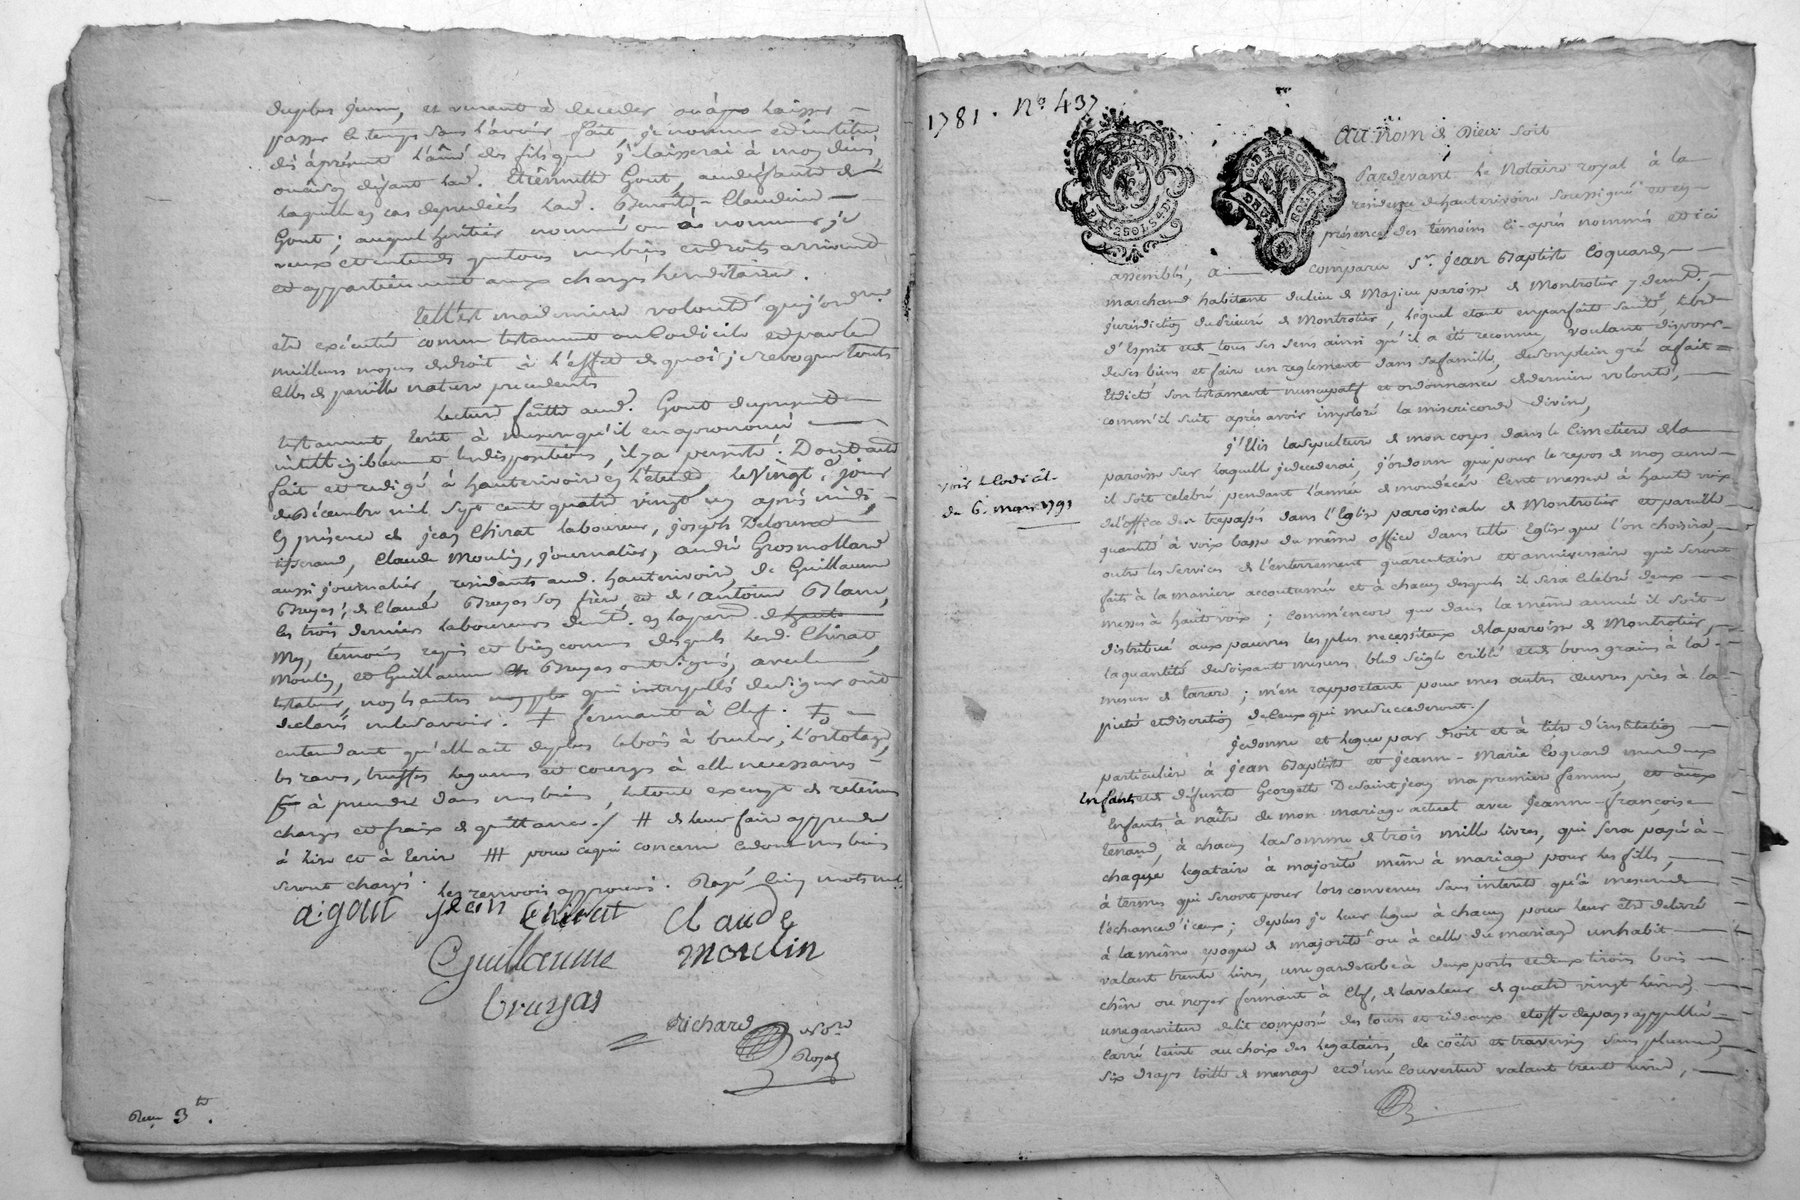 du plus jeune, et venant à deceder ou à laisser
passer le temps sans l'avoir fait, je nomme et institue
dès àprésent l'aîné des fils que je laisserai à mon decès
ou à son défaut lad. Etiennette Gout, au deffaut de
laquelle en cas de predecés lad. Benoite-Claudine
Gout; auquel heritier nommé ou à nommer, je
veux et entends que tous mes biens et droits arrivent
et appartiennent aux charges hereditaires.
Telle est ma derniere volonté que j'ordne
etre exécuté comme testament ou Codicile et par les
meilleurs moyens de droit à l'effet de quoi je revoque toutes
celles de pareille nature precedents
Lecture faitte aud. Gout du present
testament, ecrit à mesure qu'il en a prononcé
intelligiblement les dispositions, il y a persisté. Dont acte
fait et redigé à hauterivoire en l'étude, le vingt jour
de Décembre mil sept cent quatre vingt un après midi
En présence de jean Chirat laboureur, joseph Delorme
tisserand, Claude Moulin, journalier, andré Grosmollard
aussi journalier, residents aud. hauterivoire, de Guillaume
Bruyas, de Claude Bruyas son frère et de antoine Blanc,
les trois derniers laboureurs demt. en la par. de haute
My, témoins requis et bien connus desquels led. Chirat,
Moulin, et Guillaume Bruyas ont signé, avec le
testateur, non les autres qui interpellés de signer ont
declaré ne le savoir. fermant à Clef.
entendant qu'elle ait de plus le bois à bruler, l'ortolage,
les raves, truffes legumes et courges à elle necessaires
à prendre dans mes biens, le tout exempt de retenue
charges et fraix de quittance ./ # de leur faire apprendre
à lire et à ecrire ## pour ce qui concerne mes biens
seront chargés. les renvois approuvés. Rayé cinq mots nuls
a: gout jean Chirat Claude
Guillaume moulin
bruyas
Richard notre
Royal
Reçu 3 tt.
1781. No. 437
AU Nom de Dieu soit
Pardevant le Notaire royal à la
residence de hauterivoire soussigné et en
présence des témoins ci-après nommés et ici
assemblés, a comparu Sr. jean Baptiste Coquard
marchand habitant du lieu de Mazieu paroisse de Montrotier y demt.,
jurisdiction du prieuré de Montrotier, lequel etant en parfaite santé, libre
d'Esprit et de tous ses sens ainsi qu'il a été reconnu, voulant disposer
de ses biens et faire un reglement dans sa famille, de son plein gré a fait
et dicté son testament nuncupatif et ordonnance de derniere volonté,
comm'il suit après avoir imploré la misericorde divine,
j'Elis la sepulture de mon corps dans le Cimetiere de la
paroisse sur laquelle je decederai, j'ordonne que pour le repos de mon ame
il soit celebré pendant l'année de mon décès Cent messes à haute voix
de l'office des trepassés dans l'Eglise paroissiale de Montrotier et pareille
quantité à voix basse du même office dans telle Eglise que l'on choisira,
outre les services de l'enterrement quarentaine et anniversaire qui seront
faits à la maniere accoutumée et à chacun desquels il sera celebré deux
messes à haute voix; comm'encore que dans la même année il soit
distribué aux pauvres les plus necessiteux de la paroisse de Montrotier,
la quantité de soixante mesures bled seigle criblé et de bons grains à la
mesure de larare; m'en rapportant pour mes autres œuvres pies à la
pieté et discretion de Ceux qui me succederont./
Je donne et legue par droit et à titre d'institution
particuliere à jean Baptiste et jeanne-Marie Coquard mes deux
Enfants et de défunte Georgette Desaintjean ma premiere femme, et aux
Enfants à naître de mon mariage actuel avec Jeanne-françoise
tenaud, à chacun la somme de trois mille livres, qui sera payé à
chaque legataire à majorité même à mariage pour les filles,
à termes qui seront pour lors convenus sans interêt qu'à mesure de
l'échéance d'iceux; de plus je leur legue à chacun pour leur être delivré
à la même epoque de majorité ou à celle du mariage un habit
valant trente livres, une garderobe à deux portes et deux tiroirs bois
chêne ou noyer fermant à Clef, de la valeur de quatre vingt livres,
une garniture de lit composée des tours et rideaux etoffe du pays appellée
Carré teint au choix des legataires, de coëtre et traversin sans plumes,
six draps toille de menage et d'une couverture valant trente livres,
voir le Codicil.
du 6. mars 1793